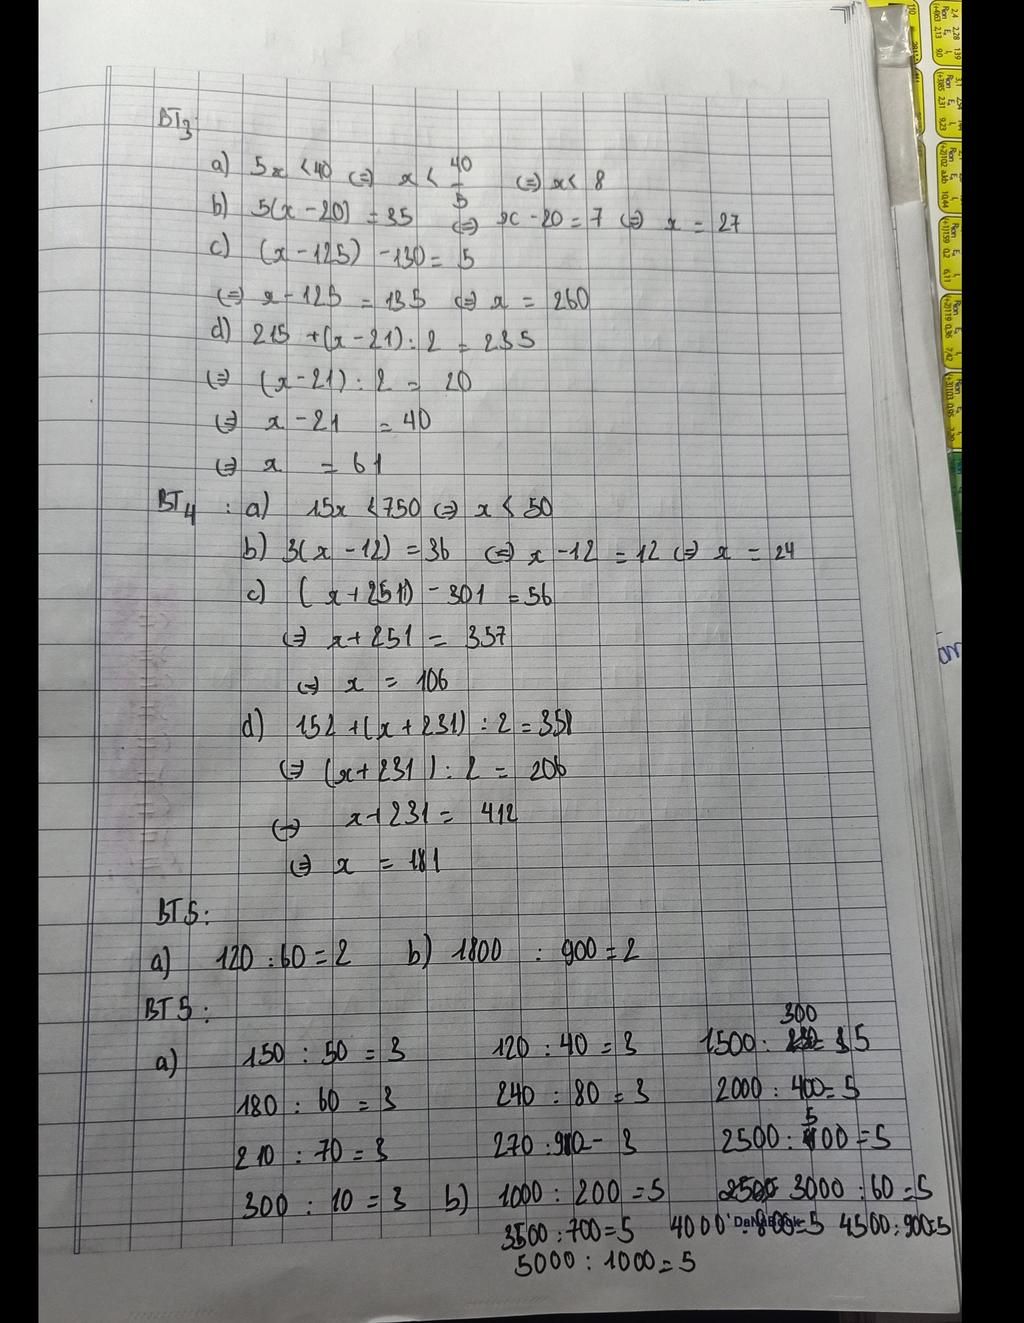 BT3:
a) 5x < 40 ⇔ x < 40/5 ⇔ x < 8
b) 5(x - 20) = 35 ⇔ x - 20 = 7 ⇔ x = 27
c) (x - 125) - 130 = 5
⇔ x - 125 = 135 ⇔ x = 260
d) 215 + (x - 21) : 2 = 235
⇔ (x - 21) : 2 = 20
⇔ x - 21 = 40
⇔ x = 61
BT4 : a) 15x < 750 ⇔ x < 50
b) 3(x - 12) = 36 ⇔ x - 12 = 12 ⇔ x = 24
c) (x + 251) - 301 = 56
⇔ x + 251 = 357
⇔ x = 106
d) 152 + (x + 231) : 2 = 358
⇔ (x + 231) : 2 = 206
⇔ x + 231 = 412
⇔ x = 181
BT5:
a) 120 : 60 = 2 b) 1800 : 900 = 2
BT5:
a) 150 : 50 = 3 120 : 40 = 3 1500 : 300 = 5
180 : 60 = 3 240 : 80 = 3 2000 : 400 = 5
210 : 70 = 3 270 : 90 = 3 2500 : 500 = 5
300 : 10 = 3 b) 1000 : 200 = 5 3000 : 60 = 5
3500 : 700 = 5 4000 : 800 = 5 4500 : 900 = 5
5000 : 1000 = 5